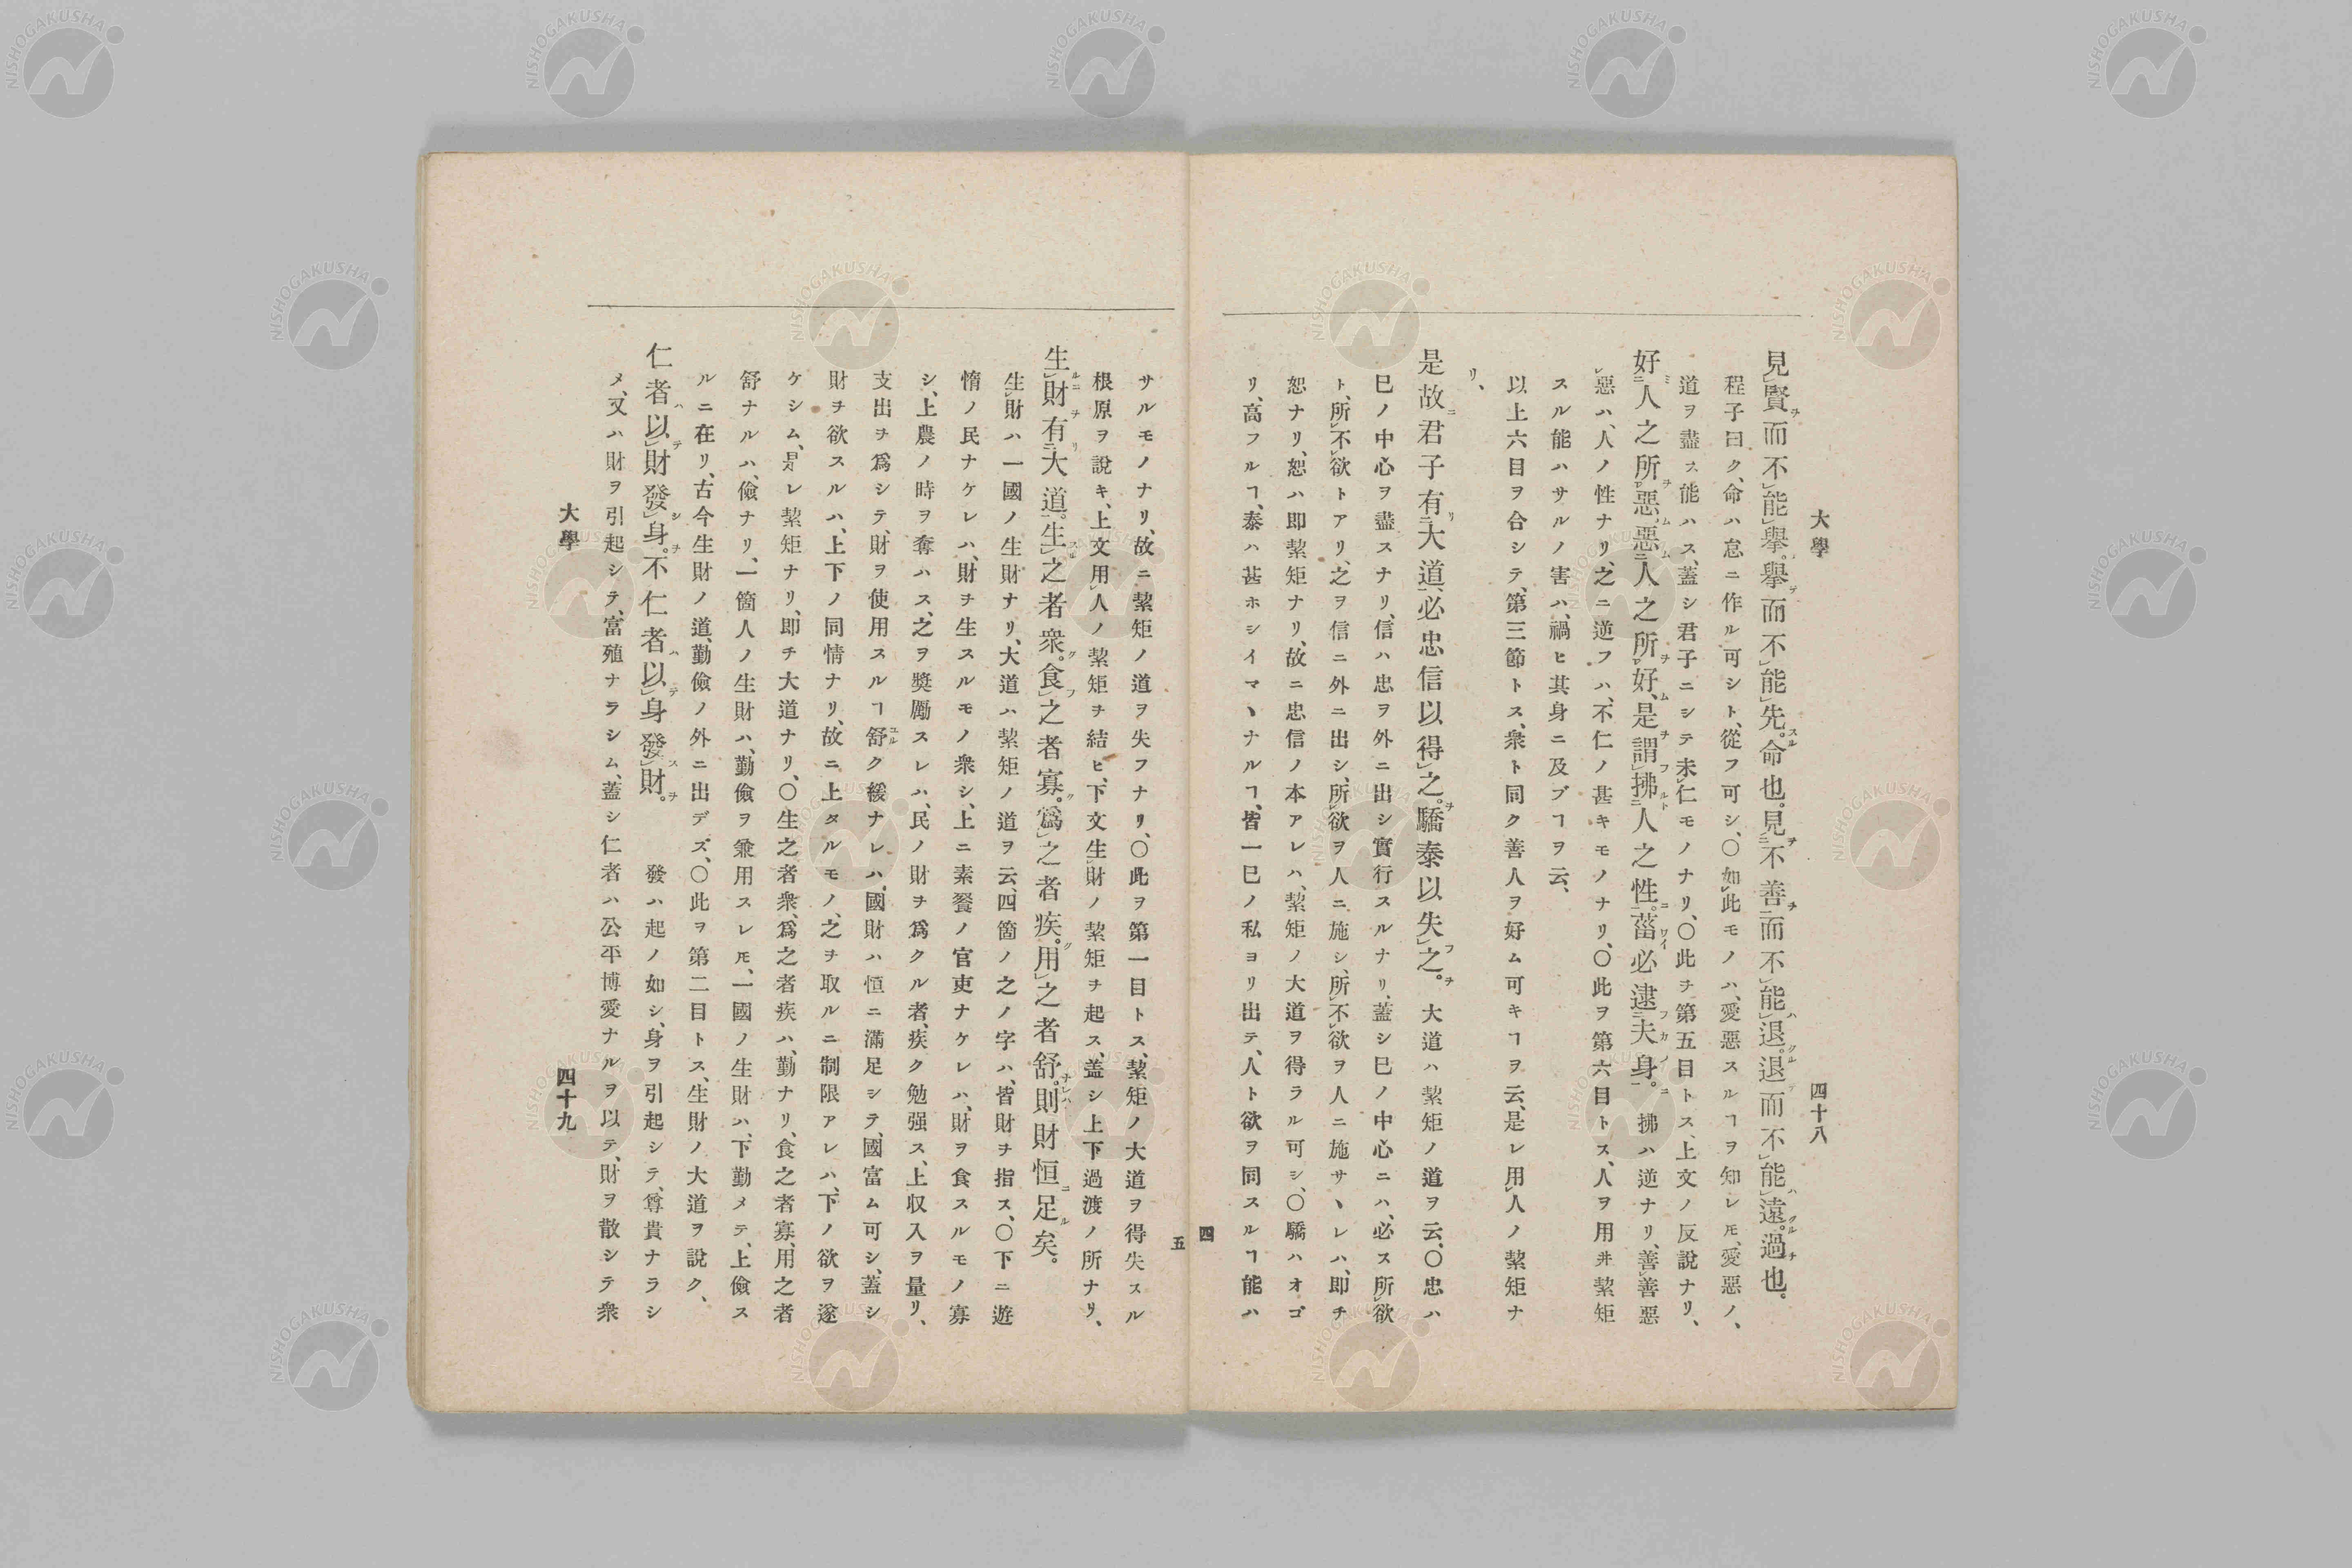 大學
四十八
見賢而不能擧。擧而不能先。命也。見不善而不能退。退而不能遠。過也。
程子曰ク、命ハ怠ニ作ル可シト、從フ可シ、〇如此モノハ、愛惡スルヿヲ知レ𪜈、愛惡ノ、
道ヲ盡ス能ハス、蓋シ君子ニシテ未仁モノナリ、〇此ヲ第五目トス、上文ノ反說ナリ、
好人之所惡、惡人之所好、是謂拂人之性。菑必逮夫身。 拂ハ逆ナリ、善善惡
惡ハ、人ノ性ナリ、之ニ逆フハ、不仁ノ甚キモノナリ、〇此ヲ第六目トス、人ヲ用井絜矩
スル能ハサルノ害ハ、禍ヒ其身ニ及ブヿヲ云、
以上六目ヲ合シテ、第三節トス、衆ト同ク善人ヲ好ム可キヿヲ云、是レ用人ノ絜矩ナ
リ、
是故君子有大道、必忠信以得之。驕泰以失之。 大道ハ絜矩ノ道ヲ云、〇忠ハ
巳ノ中心ヲ盡スナリ、信ハ忠ヲ外ニ出シ實行スルナリ、蓋シ巳ノ中心ニハ、必ス所欲
ト、所不欲トアリ、之ヲ信ニ外ニ出シ、所欲ヲ人ニ施シ、所不欲ヲ人ニ施サヽレハ、即チ
恕ナリ、恕ハ即絜矩ナリ、故ニ忠信ノ本アレハ、絜矩ノ大道ヲ得ラル可シ、〇驕ハオゴ
リ、高フルヿ、泰ハ甚ホシイマヽナルヿ、皆一巳ノ私ヨリ出テ、人ト欲ヲ同スルヿ能ハ
四
五
サルモノナリ、故ニ絜矩ノ道ヲ失フナリ、〇此ヲ第一目トス、絜矩ノ大道ヲ得失スル
根原ヲ說キ、上文用人ノ絜矩ヲ結ヒ、下文生財ノ絜矩ヲ起ス、蓋シ上下過渡ノ所ナリ、
生財有大道。生之者衆。食之者寡。爲之者疾。用之者舒。則財恒足矣。
生財ハ一國ノ生財ナリ、大道ハ絜矩ノ道ヲ云、四箇ノ之ノ字ハ、皆財ヲ指ス、〇下ニ遊
惰ノ民ナケレハ、財ヲ生スルモノ衆シ、上ニ素餐ノ官吏ナケレハ、財ヲ食スルモノ寡
シ、上農ノ時ヲ奪ハス、之ヲ奬勵スレハ、民ノ財ヲ爲クル者、疾ク勉强ス、上収入ヲ量リ、
支出ヲ爲シテ、財ヲ使用スルヿ舒ク緩ナレハ、國財ハ恒ニ滿足シテ、國富ム可シ、蓋シ
財ヲ欲スルハ、上下ノ同情ナリ、故ニ上タルモノ、之ヲ取ルニ制限アレハ、下ノ欲ヲ遂
ケシム、是レ絜矩ナリ、即チ大道ナリ、〇生之者衆、爲之者疾ハ、勤ナリ、食之者寡、用之者
舒ナルハ、儉ナリ、一箇人ノ生財ハ、勤儉ヲ兼用スレ𪜈、一國ノ生財ハ、下勤メテ、上儉ス
ルニ在リ、古今生財ノ道、勤儉ノ外ニ出デズ、〇此ヲ第二目トス、生財ノ大道ヲ說ク、
仁者以財發身。不仁者以身發財。 發ハ起ノ如シ、身ヲ引起シテ、尊貴ナラシ
メ、又ハ財ヲ引起シテ、富殖ナラシム、蓋シ仁者ハ公平博愛ナルヲ以テ、財ヲ散シテ衆
大學
四十九